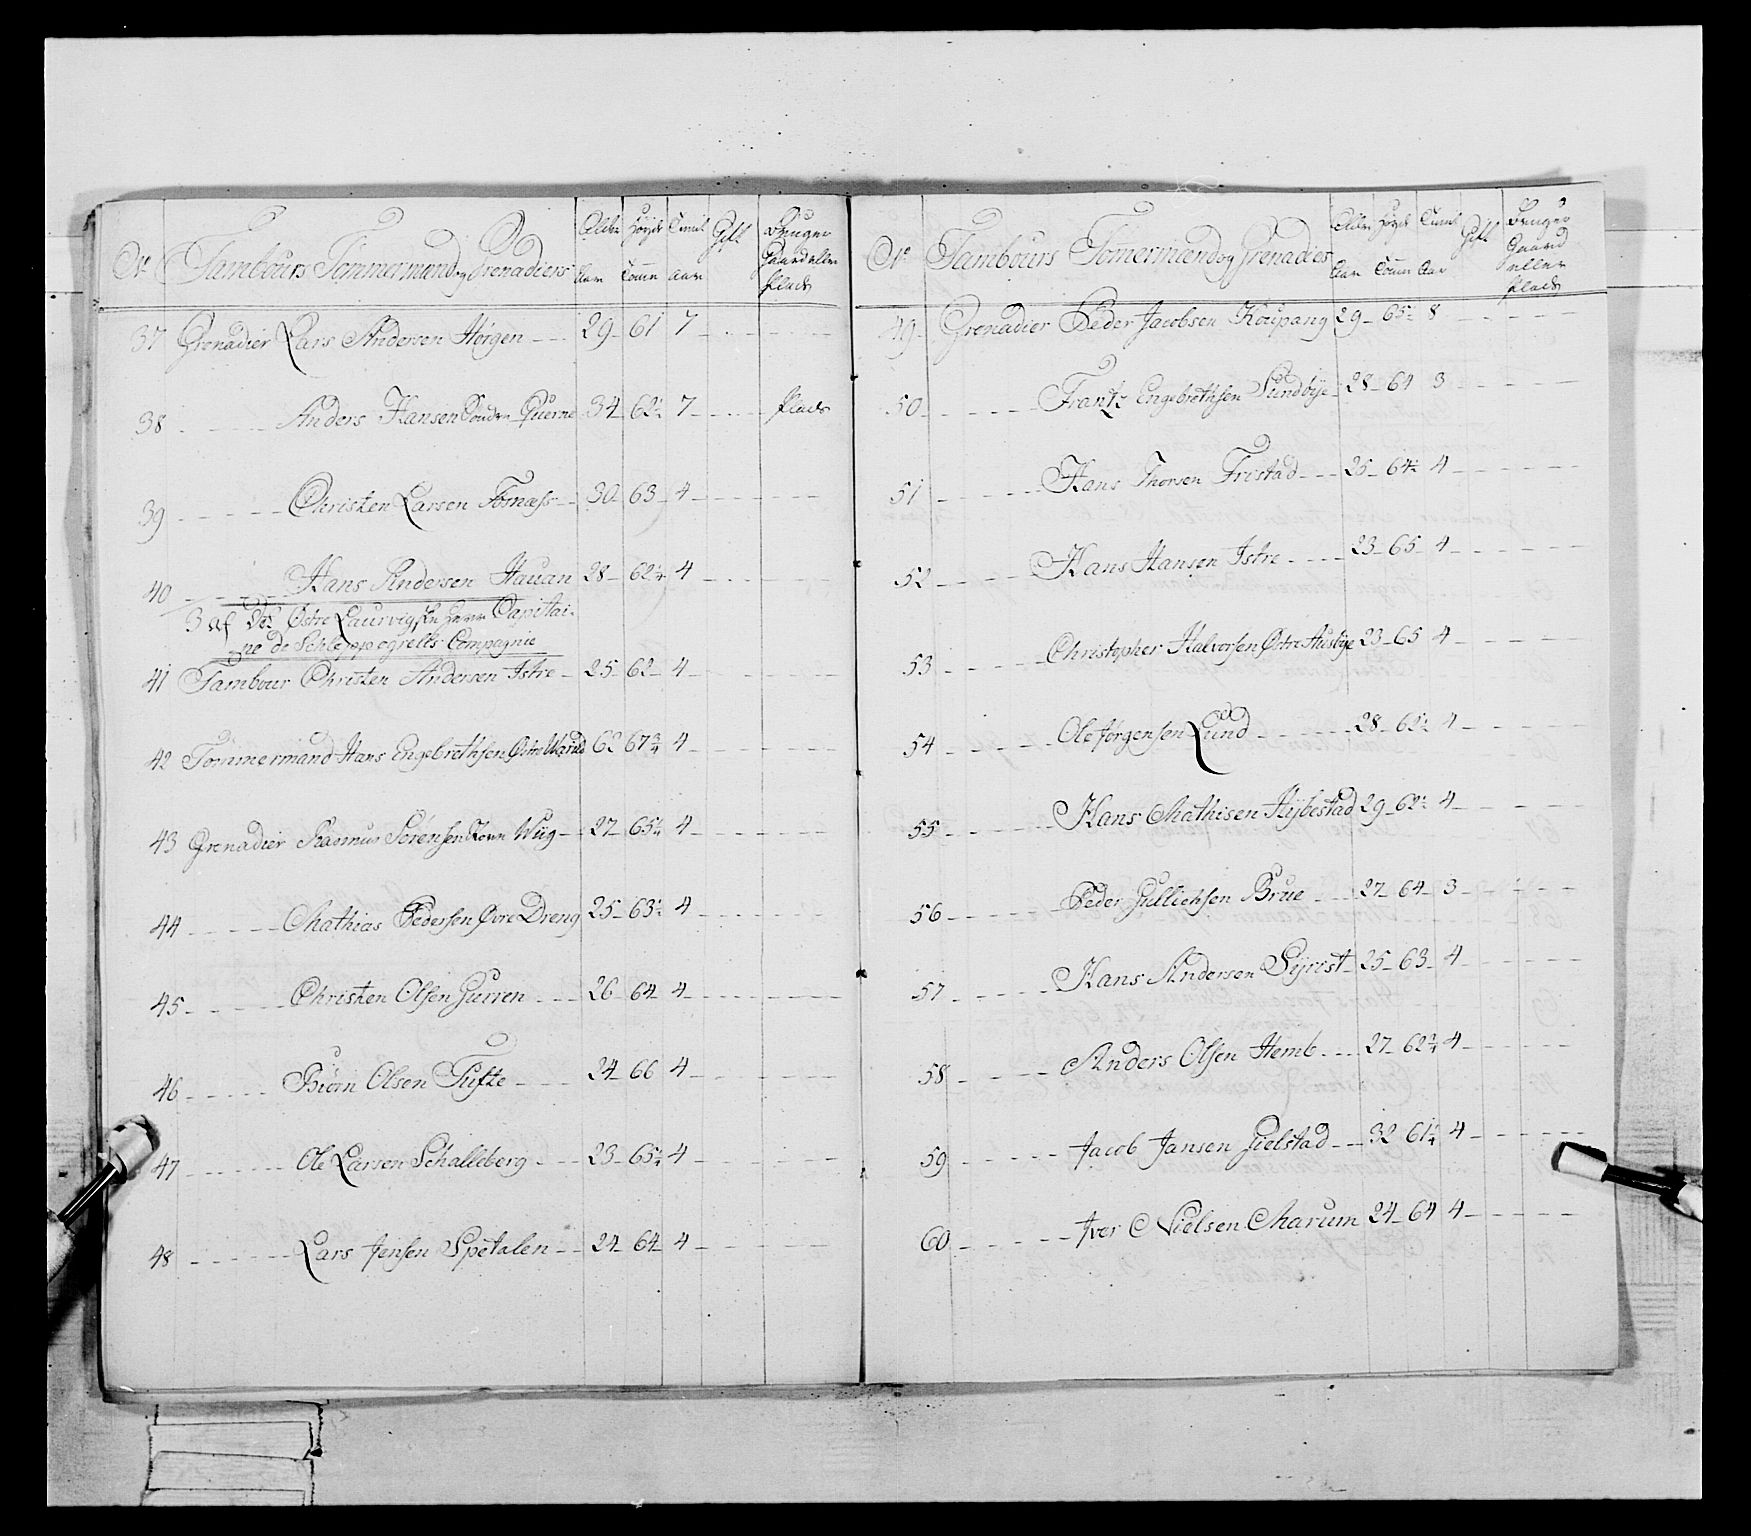 No Tambours Tømmermænd og Grenadiers Alder Aar Høyde Tomm Tient Aar Gift Bruger Gaard eller Plads
37 Grenadier Lars Andersen Hørgen 29 61 7
38 Anders Hansen Søndre Querne 34 62½ 7 Plads
39 Christen Larsen Fornæss 30 63 4
40 Hans Andersen Hauan 28 62¼ 4
3 af Det Østre Laurvigske Herr Capitai-
ne de Schleppegrells Compagnie
41 Tambour Christen Andersen Istre 25 62 4
42 Tømmermand Hans Engebrethsen Østre 62 67¾ 4
43 Grenadier Rasmus Sørensen Wiig 27 65¼ 4
44 Mathias Pedersen Øvre Dreng 25 63½ 4
45 Christen Olsen Gurren 26 64 4
46 Biørn Olsen Tufte 24 66 4
47 Ole Larsen Schalleberg 23 65¼ 4
48 Lars Jensen Spetalen 24 64 4
No Tambours Tømermænd og Grenadies Alder Aar Høyde Tomm Tient Aar Gift Bruger Gaard eller Plads
49 Grenadier Peder Jacobsen Koupang 29 65½ 8
50 Frantz Engebrethsen Sundbye 28 64 3
51 Hans Thorsen Fristad 25 64½ 4
52 Hans Hansen Istre 23 65 4
53 Christopher Halvorsen Østre Huseby 23 65 4
54 Ole Jørgensen Lund 28 62½ 4
55 Hans Mathisen Hybestad 29 62½ 4
56 Peder Gullichsen Brue 27 64 3
57 Hans Andersen Syrist 25 63 4
58 Anders Olsen Hemb 27 62¾ 4
59 Jacob Jansen Gielstad 32 61¼ 4
60 Iver Nielsen Marum 24 64 4